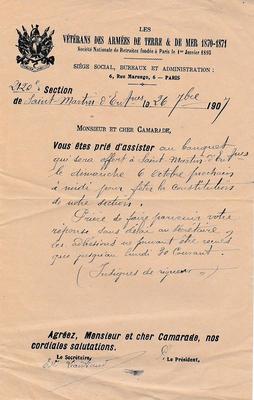 LES
VÉTÉRANS DES ARMÉES DE TERRE & DE MER 1870-1871
Société Nationale de Retraites fondée à Paris le 1er Janvier 1893
SIÈGE SOCIAL, BUREAUX ET ADMINISTRATION :
6, Rue Marengo, 6 — PARIS
Section
de Saint Martin d'Entrres, le 26 7bre 1907
MONSIEUR ET CHER CAMARADE,
Vous êtes prié d'assister au banquet
qui sera offert à Saint Martin d'Entres
le dimanche 6 octobre prochain
à midi pour fêter la Constitution
de notre section.
Prière de faire parvenir votre
réponse sans délai au secrétaire
les adhésions ne pouvant être reçues
que jusqu'au lundi 30 Courant.
(Insignes de rigueur)
Agréez, Monsieur et cher Camarade, nos
cordiales salutations.
Le Secrétaire, Le Président,